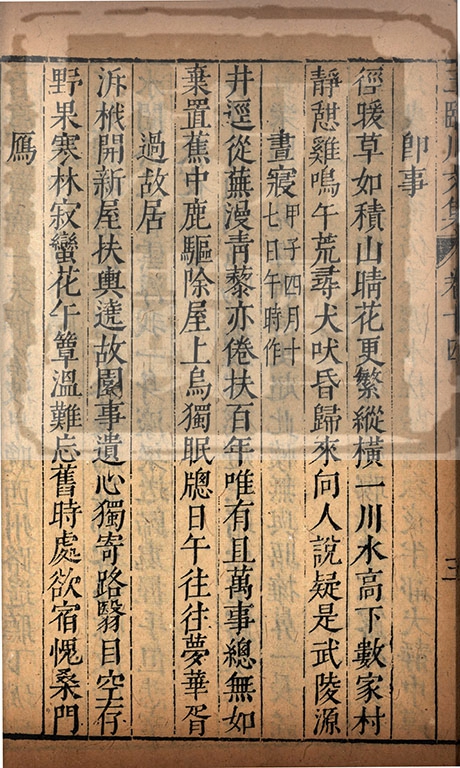 王臨川文集 卷十四 三
即事
徑暖草如積山晴花更繁縱橫一川水高下數家村
靜憩雞鳴午荒尋犬吠昏歸來向人說疑是武陵源
晝寢 甲子四月十七日午時作
井逕從蕪漫青藜亦倦扶百年唯有且萬事總無如
棄置蕉中鹿驅除屋上烏獨眠牕日午往往夢華胥
過故居
泝栰開新屋扶輿遶故園事遺心獨寄路翳目空存
野果寒林寂蠻花午簟溫難忘舊時處欲宿愧桑門
鴈